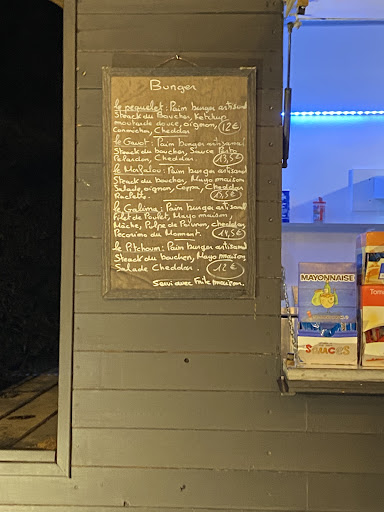 Burger
Le pequelet : Pain burger artisanal
Steack du Boucher, Ketchup
moutarde douce, oignon,
Cornichon, Cheddar. 12€
Le Gavot : Pain burger artisanal
Steack du boucher, Sauce Pesto
Pelardon, Cheddar. 13,5€
Le Malalou : Pain burger artisanal
Steack du boucher, Mayo maison
Salade, oignon, Coppa, Cheddar
Raclette. 13,5€
Le Galina : Pain burger artisanal
Filet de Poulet, Mayo maison,
Mâche, Pulpe de Poivron, Cheddar
Pecorino du Moment. 14,5€
Le Pitchoun : Pain burger artisanal
Steack du boucher, Mayo maison
Salade Cheddar. 12€
Servi avec Frite maison.
MAYONNAISE
SAUCES
Tom